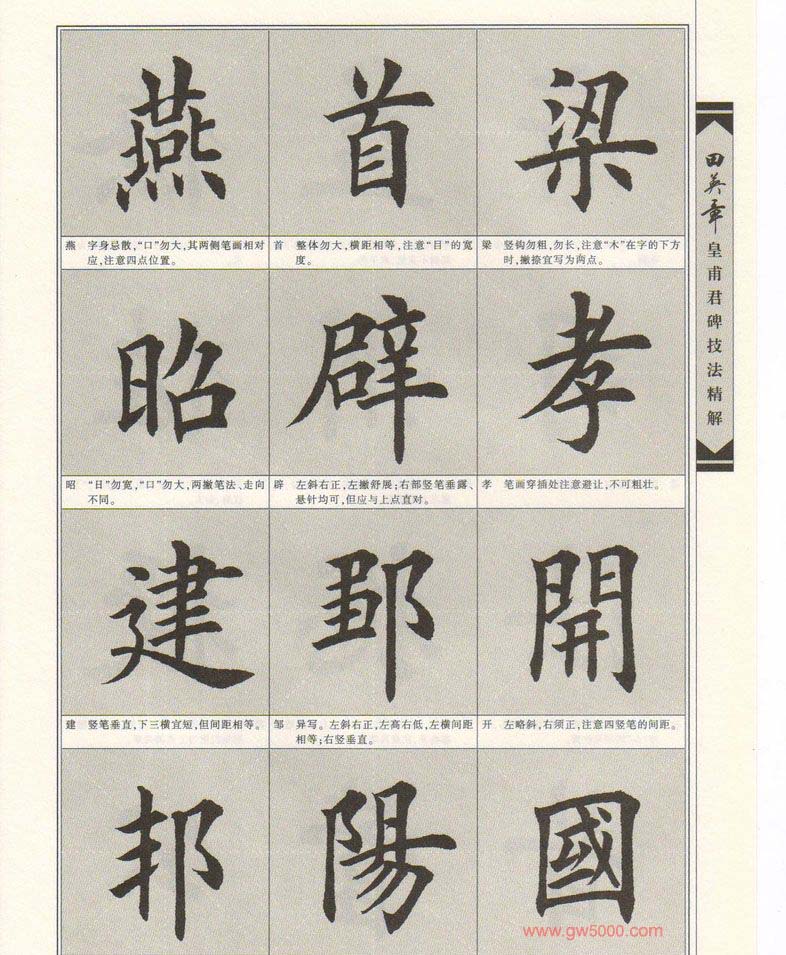 燕 首 梁
燕 字身忌散,“口”勿大,其两侧笔画相对
应,注意四点位置。
首 整体勿大,横距相等,注意“目”的宽
度。
梁 竖钩勿粗,勿长,注意“木”在字的下方
时,撇捺宜写为两点。
昭 辟 孝
昭 “日”勿宽,“口”勿大,两撇笔法、走向
不同。
辟 左斜右正,左撇舒展;右部竖笔垂露、
悬针均可,但应与上点直对。
孝 笔画穿插处注意避让,不可粗壮。
建 邹 開
建 竖笔垂直,下三横宜短,但间距相等。
邹 异写。左斜右正,左高右低,左横间距
相等;右竖垂直。
开 左略斜,右须正,注意四竖笔的间距。
邦 陽 國
田英章
皇甫君碑技法精解
www.gw5000.com